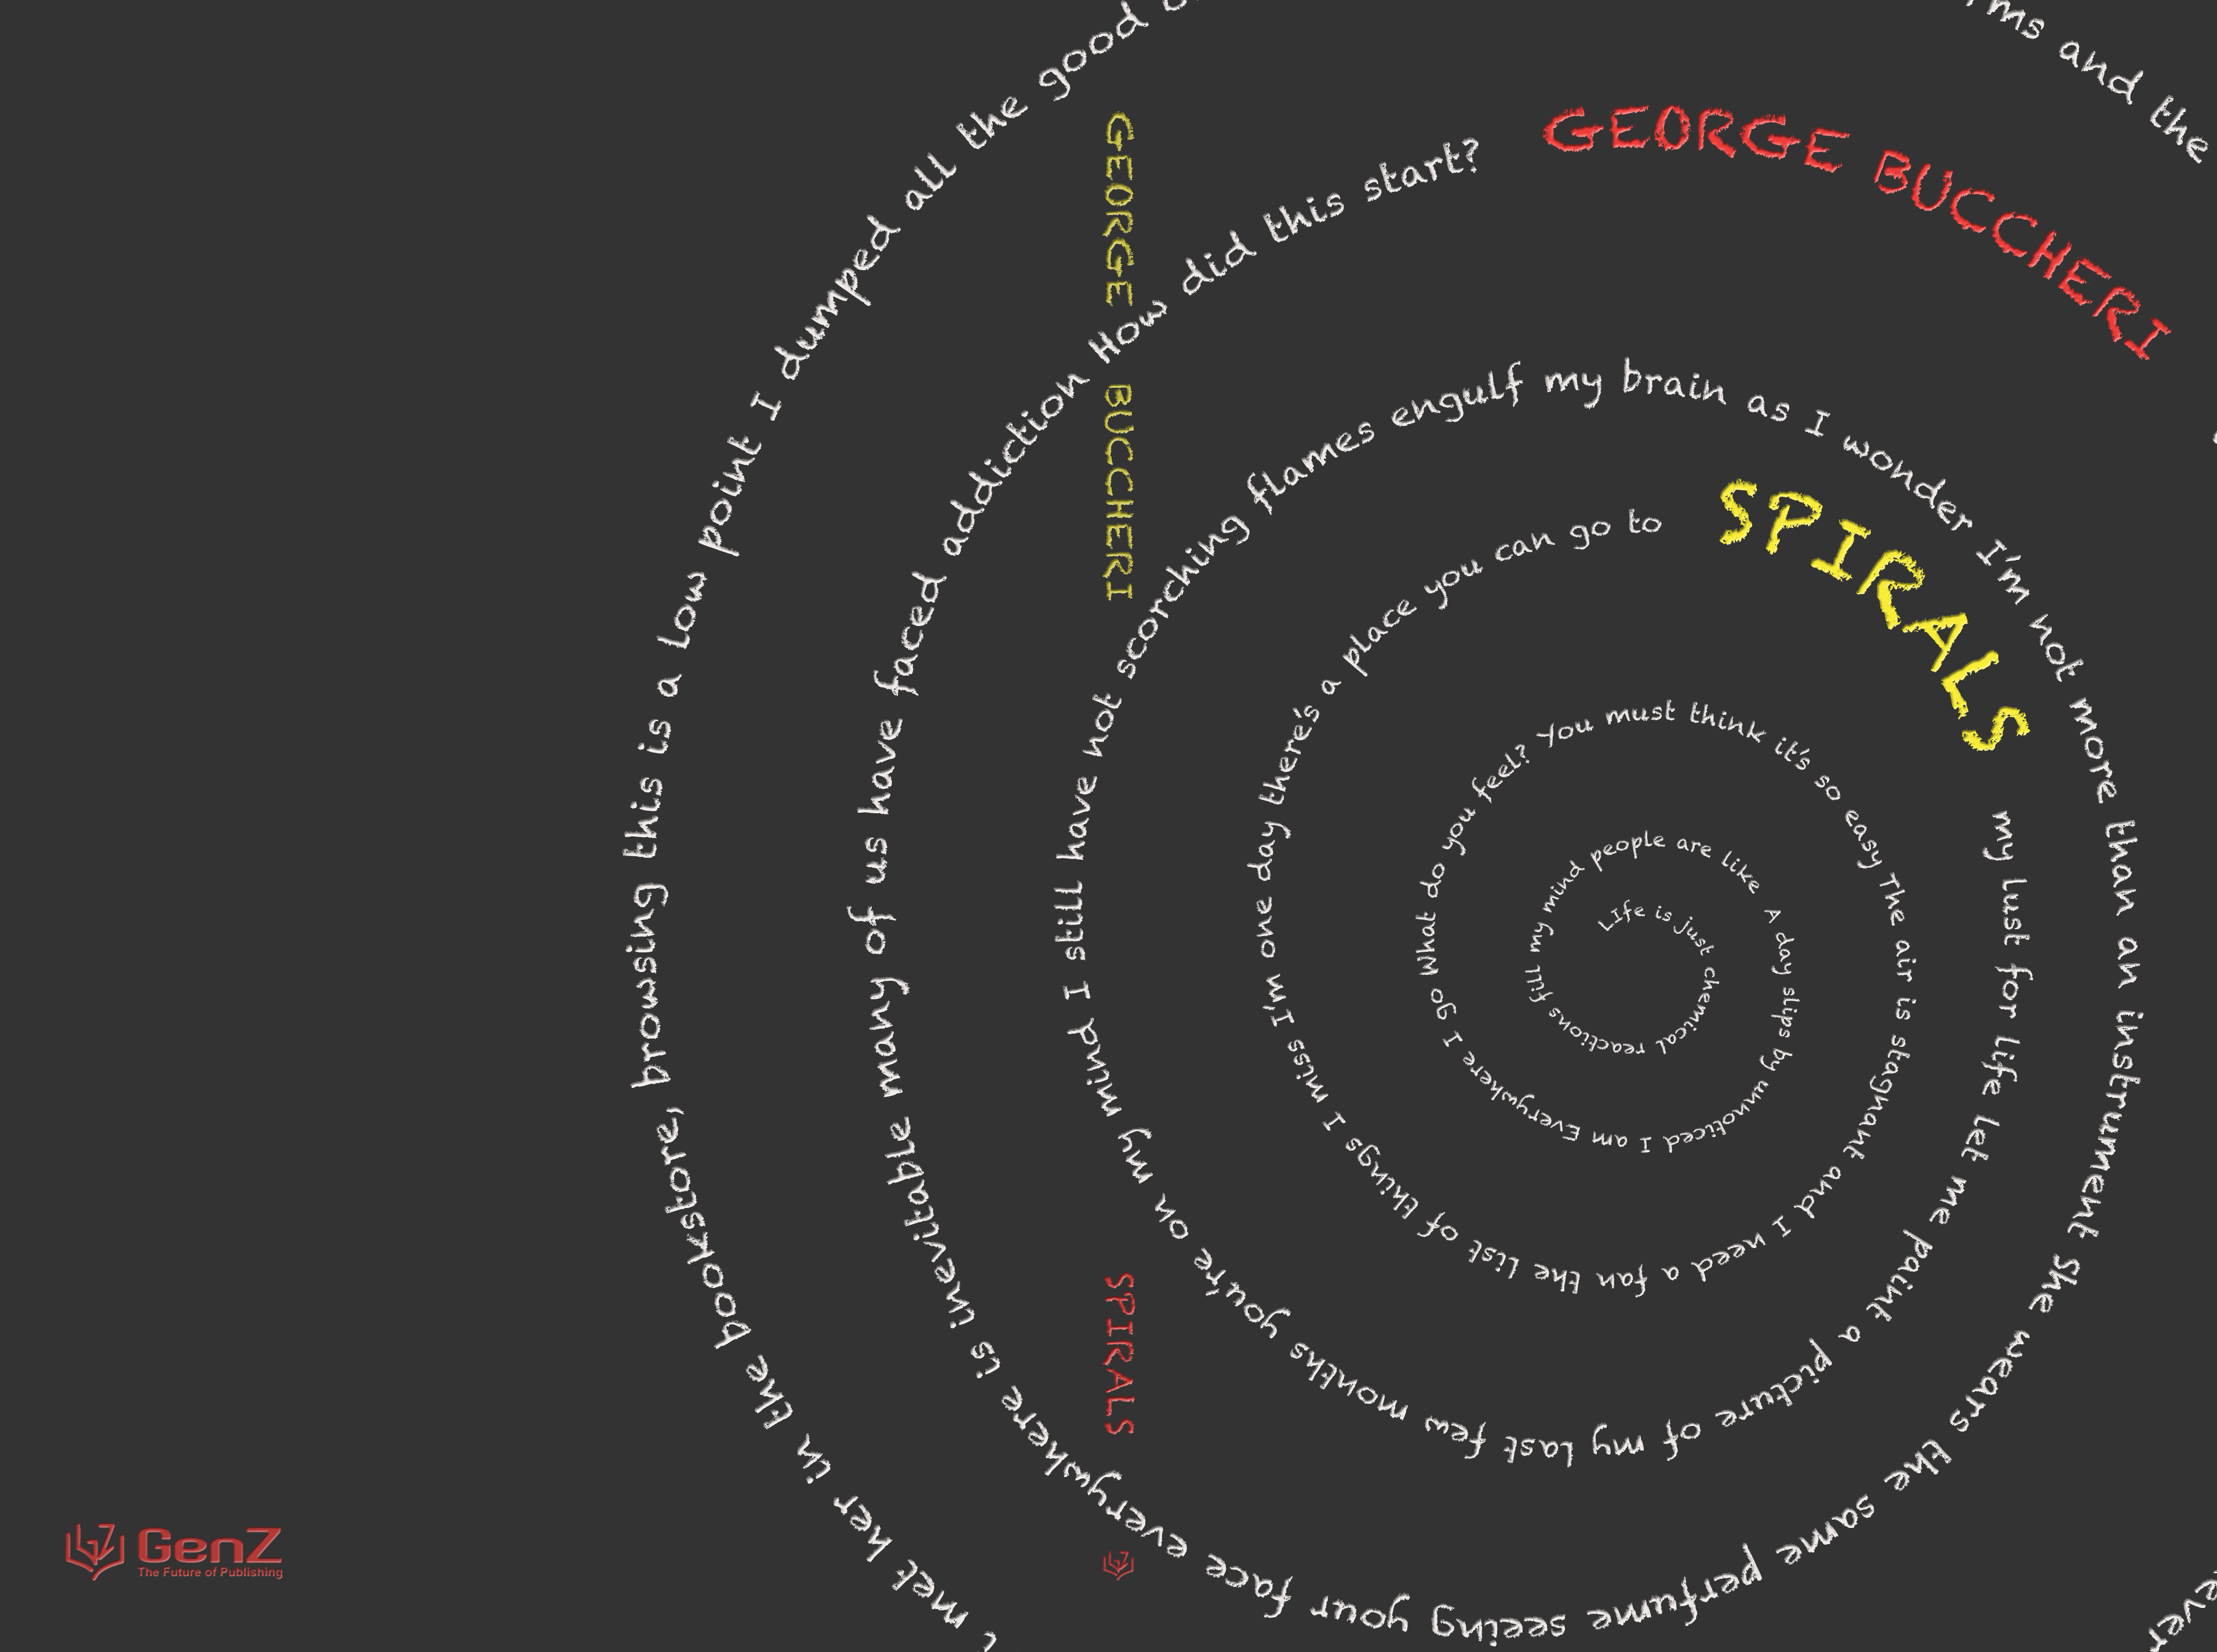 LIfe is just chemical reactions fill my mind people are like A day slips by unnoticed I am Everywhere I go What do you feel? You must think it's so easy The air is stagnant and I need a fan the list of things I miss I'm one day there's a place you can go to
SPIRALS
my lust for life Let me paint a picture of my last few months you're on my mind I still have not scorching flames engulf my brain as I wonder I'm not more than an instrument She wears the same perfume seeing your face everywhere is inevitable many of us have faced addiction How did this start?
GEORGE BUCCHERI
met her in the bookstore, browsing this is a Low point I dumped all the good
and the
GEORGE BUCCHERI
SPIRALS
GenZ
The Future of Publishing